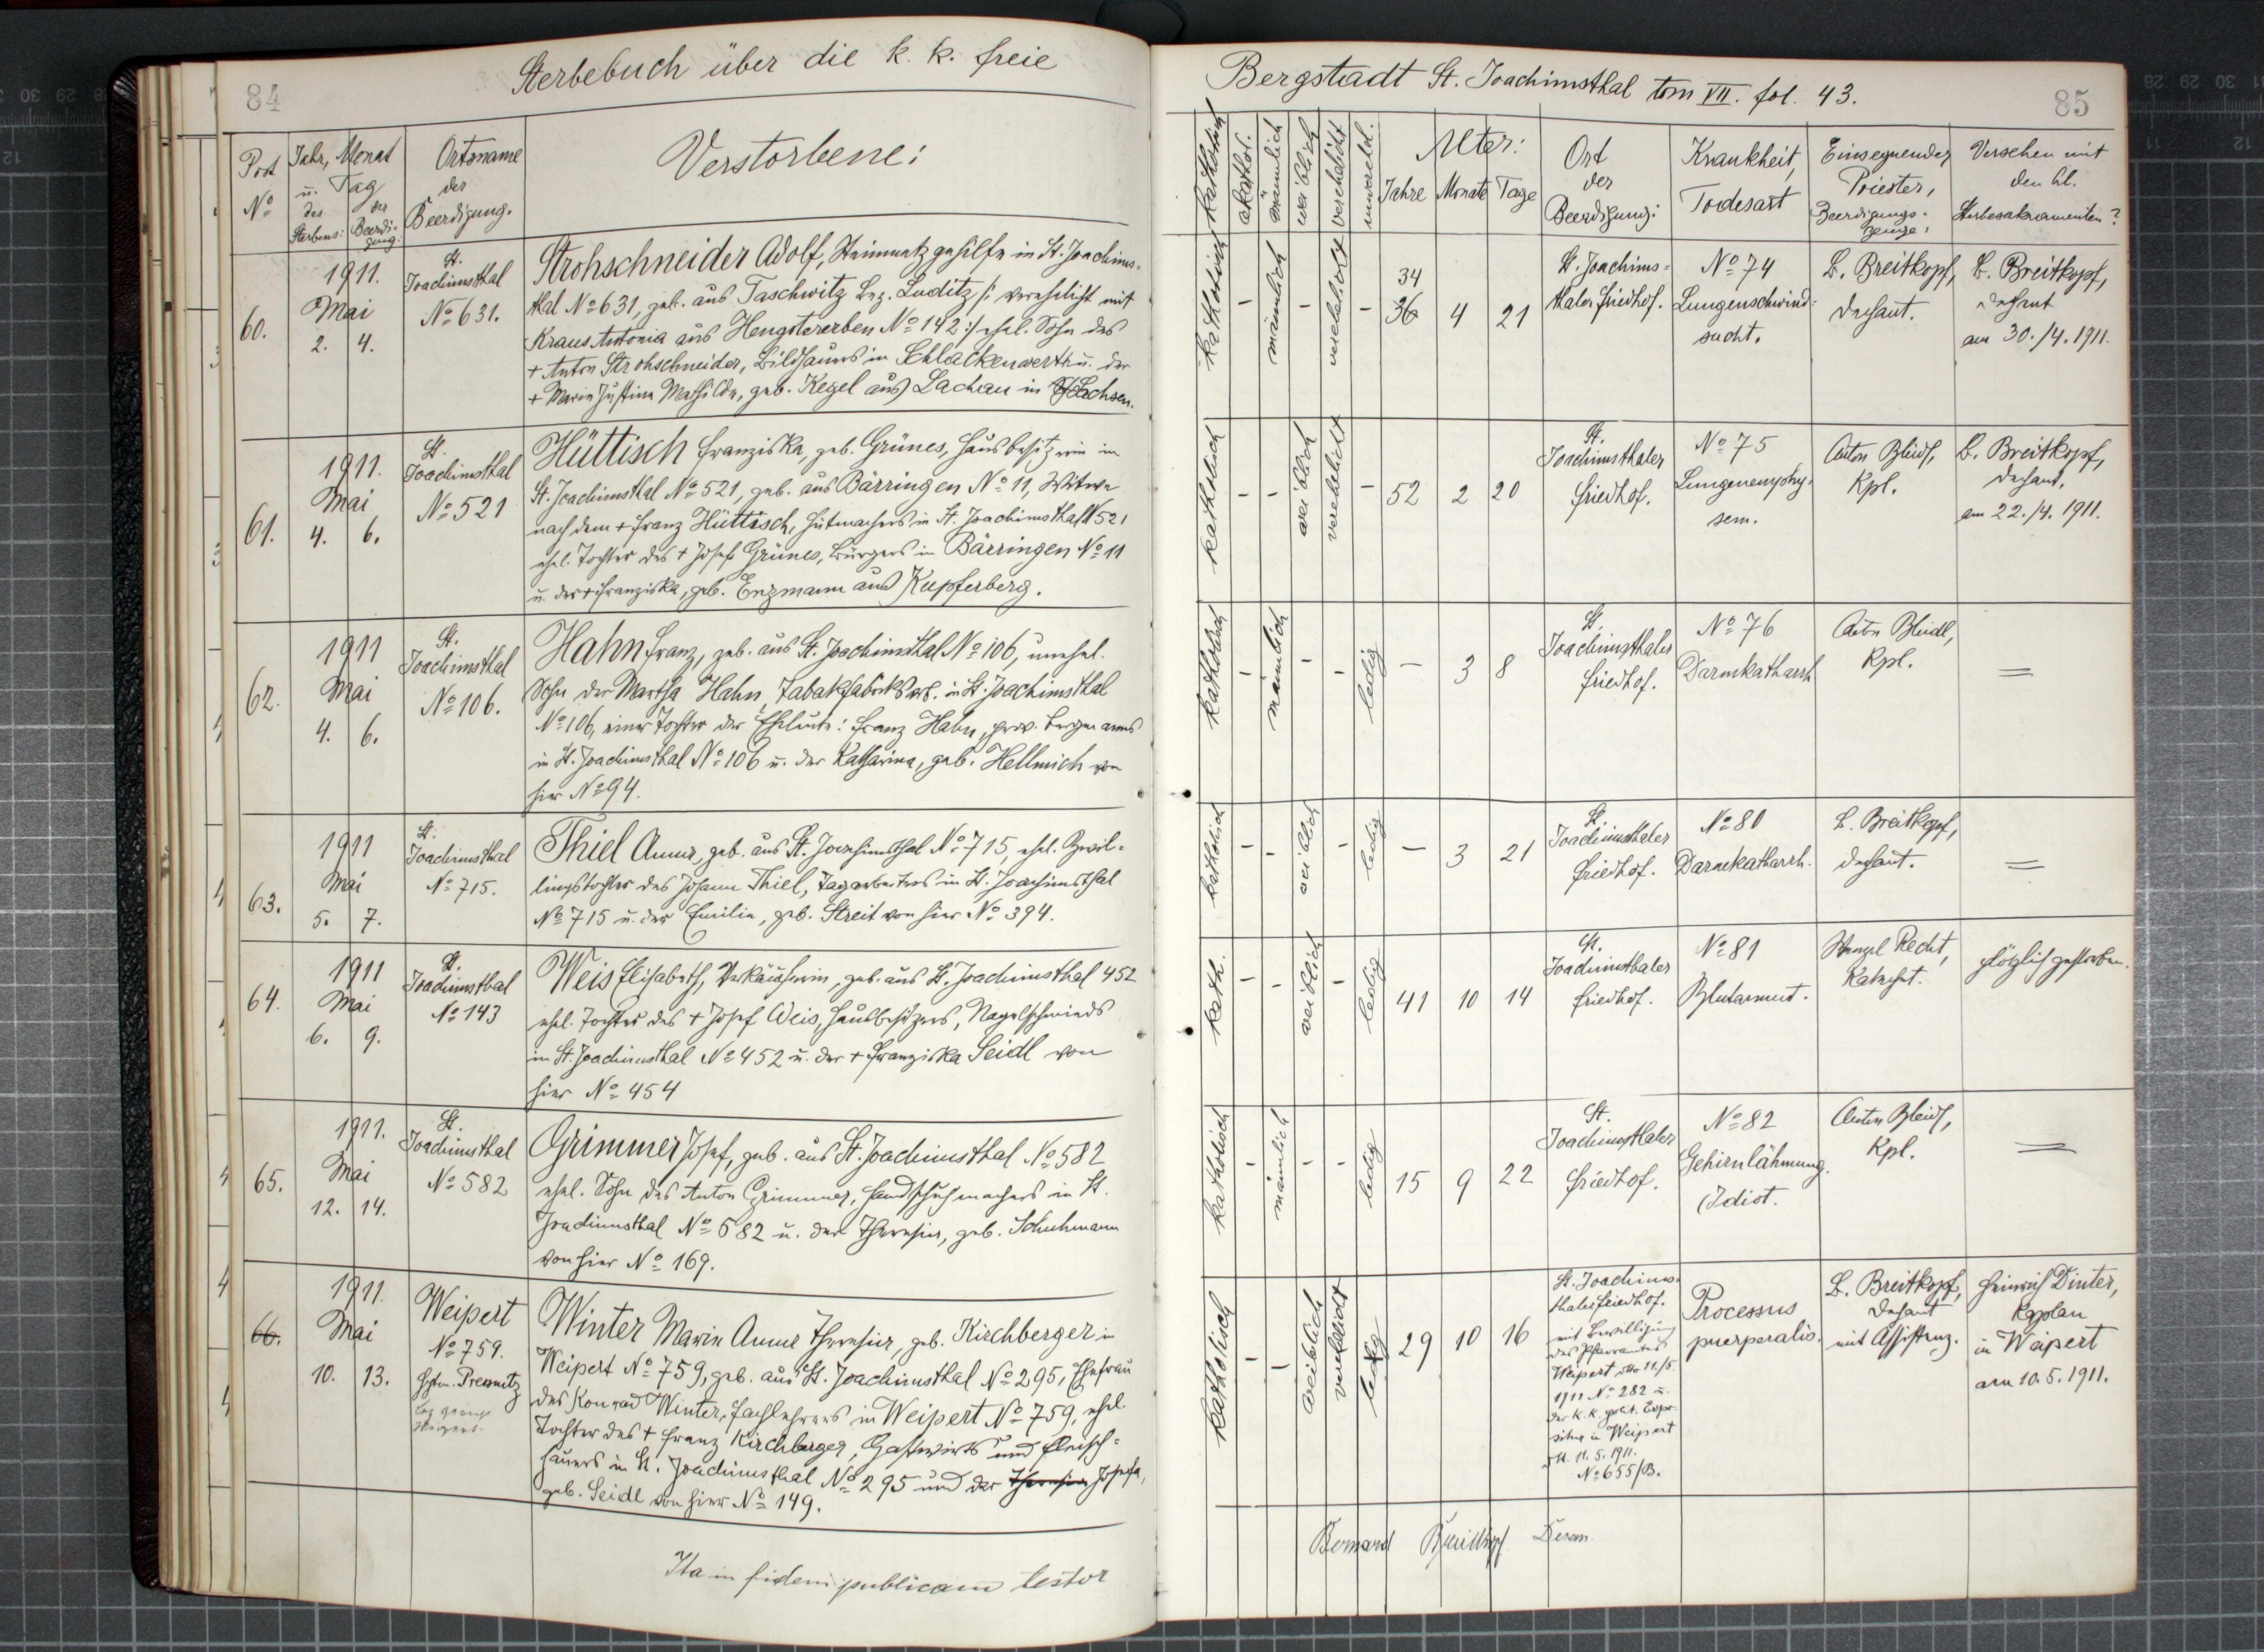 84
Sterbebuch über die k. k. freie
Post
No
Jahr, Monat
u. Tag
des
Sterbens:
der
Beerdi-
gung:
Ortsname
der
Beerdigung.
Verstorbene:
60.
1911.
Mai
2. 4.
St.
Joachimsthal
No 631.
Strohschneider Adolf, Steinmetzgehilfe in St. Joachims-
thal No 631, geb. aus Taschwitz Bez. Luditz /: verehelicht mit
Kraus Antonia aus Hengstererben No 142 :/ ehel. Sohn des
+ Anton Strohschneider, Bildhauers in Schlackenwerth u. der
+ Marie Justina Mathilde, geb. Kegel aus Lachau in Sachsen.
61.
1911.
Mai
4. 6.
St.
Joachimsthal
No 521
Hüttisch Franziska, geb. Grünes, Hausbesitzerin in
St. Joachimsthal No 521, geb. aus Bärringen No 11, Witwe
nach dem + Franz Hüttisch, Hutmachers in St. Joachimsthal N 521
ehel. Tochter des + Josef Grünes, Bürgers in Bärringen No 11
u. der + Franziska, geb. Enzmann aus Kupferberg.
62.
1911
Mai
4. 6.
St.
Joachimsthal
No 106.
Hahn Franz, geb. aus St. Joachimsthal No 106, unehel.
Sohn der Martha Hahn, Tabakfabriksarb. in St. Joachimsthal
No 106, einer Tochter der Eheleute: Franz Hahn, prov. Bergmanns
in St. Joachimsthal No 106 u. der Katharina, geb. Hellmich von
hier No 94.
63.
1911
Mai
5. 7.
St.
Joachimsthal
No 715.
Thiel Anna, geb. aus St. Joachimsthal No 715, ehel. Zwil-
lingstochter des Johann Thiel, Tagarbeiters in St. Joachimsthal
No 715 u. der Emilie, geb. Streit von hier No 394.
64.
1911
Mai
6. 9.
St.
Joachimsthal
No 143
Weis Elisabeth, Verkäuferin, geb. aus St. Joachimsthal 452
ehel. Tochter des + Josef Weis, Hausbesitzers, Nagelschmieds
in St. Joachimsthal No 452 u. der + Franziska Seidl von
hier No 454
65.
1911.
Mai
12. 14.
St.
Joachimsthal
No 582
Grimmer Josef, geb. aus St. Joachimsthal No 582
ehel. Sohn des Anton Grimmer, Handschuhmachers in St.
Joachimsthal No 582 u. der Theresia, geb. Schuhmann
von hier No 169.
66.
1911.
Mai
10. 13.
Weipert
No 759.
Hptm. Pressnitz
Weipert.
Winter Marie Anna Theresia, geb. Kirchberger in
Weipert No 759, geb. aus St. Joachimsthal No 295, Ehefrau
des Konrad Winter, Fachlehrers in Weipert No 759, ehel.
Tochter des + Franz Kirchberger, Gastwirts und Fleisch-
hauers in St. Joachimsthal No 295 und der Theresia Josefa,
geb. Seidl von hier No 149.
Ita in fidem publicam testor
Bergstadt St. Joachimsthal tom VII. fol. 43.
85
katholisch
akathol.
männlich
weiblich
verehelicht
unverehel.
Alter:
Jahre Monate Tage
Ort
der
Beerdigung:
Krankheit,
Todesart
Einsegnender
Priester,
Beerdigungs-
zeuge:
Versehen mit
den hl.
Sterbesakramenten?
katholisch - männlich - verehelicht -
34
36 4 21
St. Joachims-
thaler Friedhof.
No 74
Lungenschwind-
sucht.
B. Breitkopf,
Dechant.
B. Breitkopf,
Dechant
am 30./4. 1911.
katholisch - - weiblich verehelicht -
52 2 20
St.
Joachimsthaler
Friedhof.
No 75
Lungenemphy-
sem.
Anton Bleidl,
Kpl.
B. Breitkopf,
Dechant,
am 22./4. 1911.
katholisch - männlich - - ledig
- 3 8
St.
Joachimsthaler
Friedhof.
No 76
Darmkatharrh
Anton Bleidl,
Kpl.
=
katholisch - - weiblich - ledig
- 3 21
St.
Joachimsthaler
Friedhof.
No 80
Darmkatharrh.
B. Breitkopf,
Dechant.
=
kath. - - weiblich - ledig
41 10 14
St.
Joachimsthaler
Friedhof.
No 81
Blutarmut.
Wenzel Recht,
Katechet.
plötzlich gestorben.
katholisch - männlich - - ledig
15 9 22
St.
Joachimsthaler
Friedhof.
No 82
Gehirnlähmung.
Idiot.
Anton Bleidl,
Kpl.
=
katholisch - - weiblich verehelicht ledig
29 10 16
St. Joachims-
thaler Friedhof.
mit Bewilligung
des Pfarramtes
Weipert dto 11./5.
1911 No 282 u.
der k. k. polit. Expo-
situr in Weipert
dt. 11. 5. 1911.
No 655/B.
Processus
puerperalis.
B. Breitkopf,
Dechant
mit Assistenz.
Heinrich Dinter,
Kaplan
in Weipert
am 10. 5. 1911.
Bernard Breitkopf Decan.